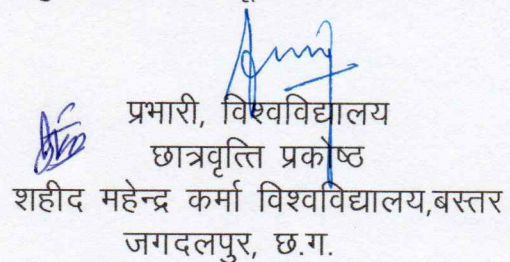 प्रभारी, विश्वविद्यालय
छात्रवृत्ति प्रकोष्ठ
शहीद महेन्द्र कर्मा विश्वविद्यालय,बस्तर
जगदलपुर, छ.ग.